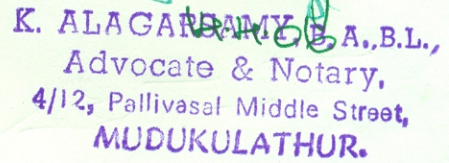 K. ALAGARSAMY, B.A.,B.L.,
Advocate & Notary,
4/12, Pallivasal Middle Street,
MUDUKULATHUR.